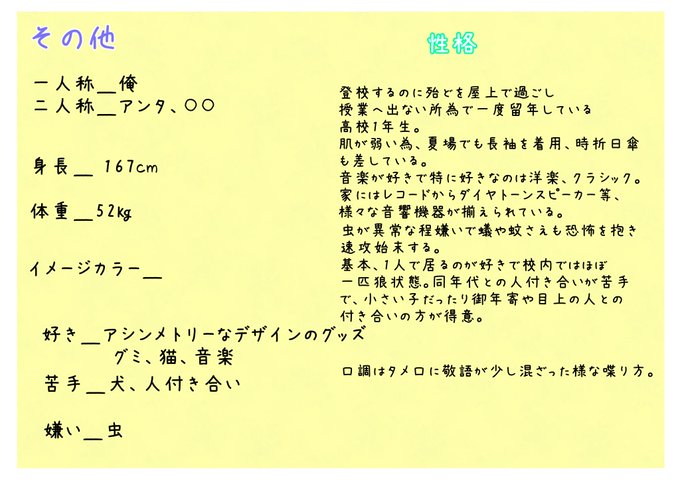 その他
一人称__俺
二人称__アンタ、○○
身長__ 167cm
体重__52kg
イメージカラー__
好き__アシンメトリーなデザインのグッズ
グミ、猫、音楽
苦手__犬、人付き合い
嫌い__虫
性格
登校するのに殆どを屋上で過ごし
授業へ出ない所為で一度留年している
高校1年生。
肌が弱い為、夏場でも長袖を着用、時折日傘
も差している。
音楽が好きで特に好きなのは洋楽、クラシック。
家にはレコードからダイヤトーンスピーカー等、
様々な音響機器が揃えられている。
虫が異常な程嫌いで蟻や蚊さえも恐怖を抱き
速攻始末する。
基本、1人で居るのが好きで校内ではほぼ
一匹狼状態。同年代との人付き合いが苦手
で、小さい子だったり御年寄や目上の人との
付き合いの方が得意。
口調はタメ口に敬語が少し混ざった様な喋り方。